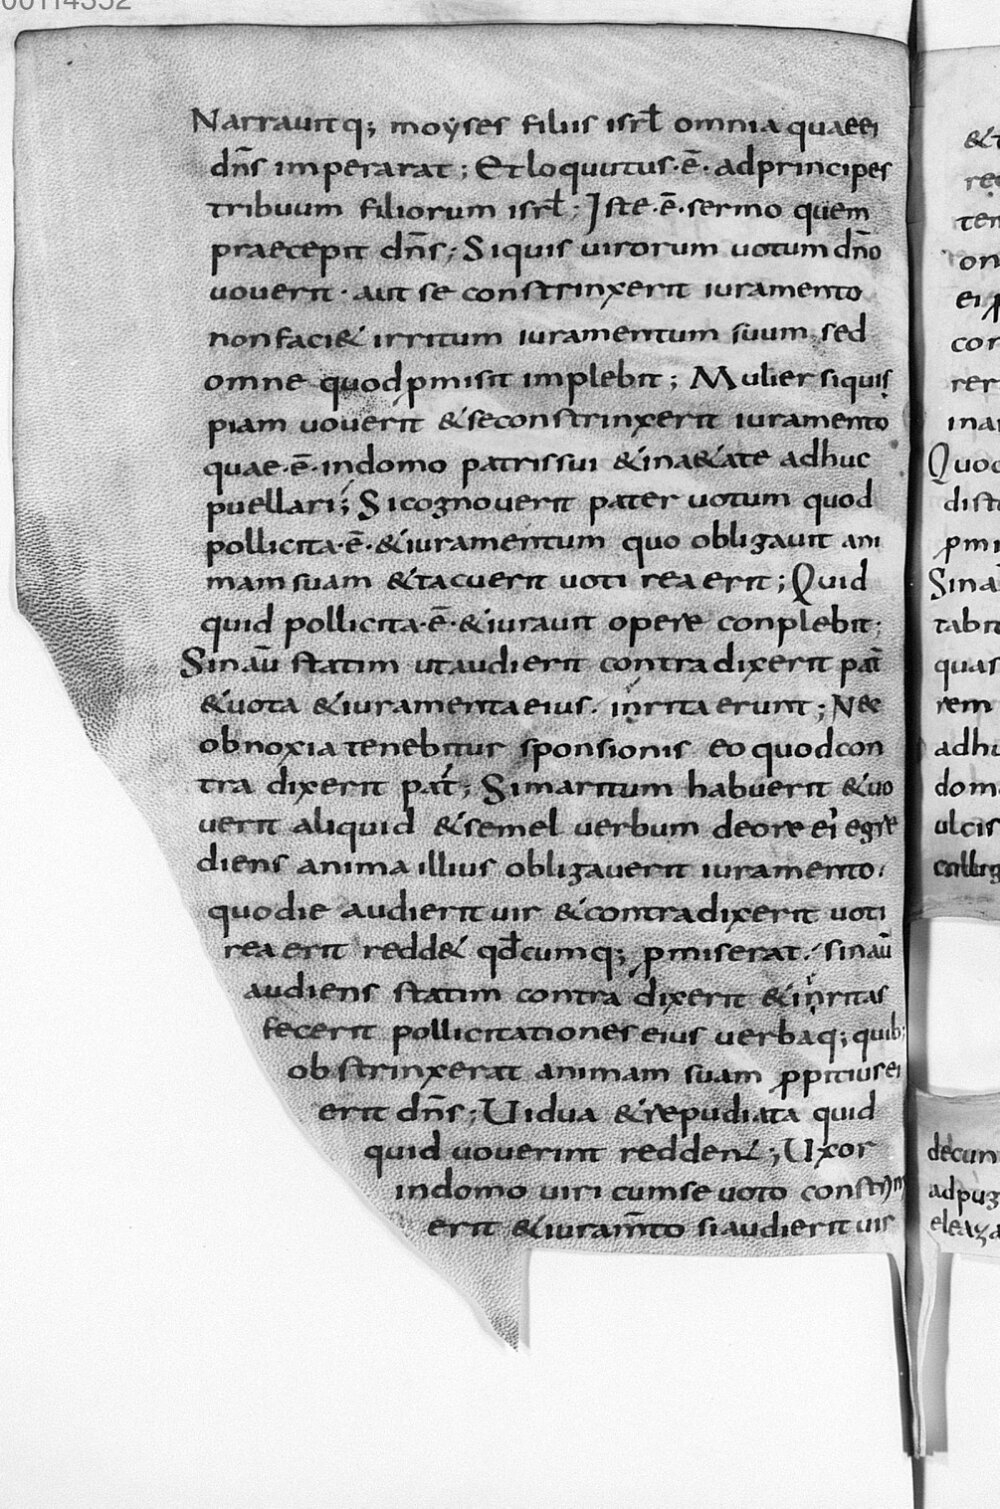 Narrauitq; moyses filiis isrł omnia quae ei
dn̄s imperarat; Et loquutus·ē·ad principes
tribuum filiorum isrł; Iste·ē·sermo quem
praecepit dn̄s; Siquis uirorum uotum dn̄o
uouerit· aut se constrinxerit iuramento
non faci& irritum iuramentum suum sed
omne quod ꝓmisit implebit; Mulier siquis
piam uouerit & se constrinxerit iuramento
quae·ē·in domo patris sui & in a&ate adhuc
puellari; Si cognouerit pater uotum quod
pollicita·ē·& iuramentum quo obligauit ani
mam suam & tacuerit uoti rea erit; Quid
quid pollicita·ē·& iurauit opere conplebit;
Sin aū statim ut audierit contradixerit pat̄
& uota & iuramenta eius· inrita erunt; Nec
obnoxia tenebitur sponsionis eo quod con
tra dixerit pat̄; Si maritum habuerit & uo
uerit aliquid & semel uerbum de ore ei' egre
diens anima illius obligauerit iuramento·
quo die audierit uir & contradixerit uoti
rea erit redd& qđcumq; ꝓmiserat· sin aū
audiens statim contra dixerit & inritas
fecerit pollicitationes eius uerbaq; quib;
obstrinxerat animam suam ꝓpitius ei
erit dn̄s; Uidua & repudiata quid
quid uouerint redden&; Uxor
in domo uiri cum se uoto constrinx
erit & iuram̄to si audierit uir
&t
ten
on
ei p
cor
rer
ina
Quod
dist
ꝓmi
Sin a
tabit
quas
rem
adhu
dom
ulcis
decun
ad pug
eleaza